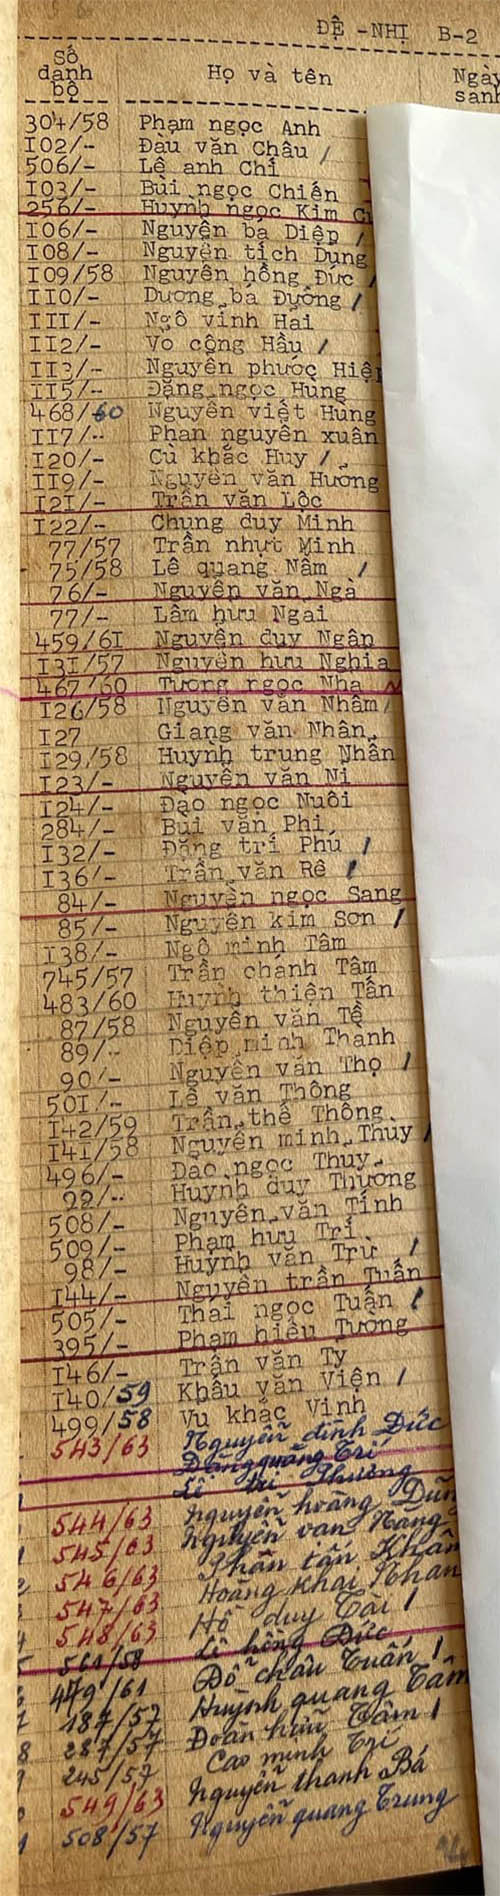 ĐỆ -NHỊ B-2
Số danh bộ Họ và tên Ngày sanh
304/58 Phạm ngọc Anh
I02/- Đàu văn Châu /
506/- Lê anh Chí
I03/- Bùi ngọc Chiến
256/- Huỳnh ngọc Kim
I06/- Nguyễn bá Diệp /
I08/- Nguyễn tích Dụng
I09/58 Nguyễn hồng Đức /
II0/- Dương bá Đường /
III/- Ngô vinh Hai
II2/- Vo công Hầu /
II3/- Nguyễn phước
II5/- Đặng ngọc Hùng
468/60 Nguyễn việt Hùng
II7/- Phan nguyên xuân
I20/- Cù khắc Huy /
II9/- Nguyễn văn Hương
I2I/- Trần văn Lộc
I22/- Chung duy Minh
77/57 Trần nhựt Minh
75/58 Lê quang Nẫm /
76/- Nguyễn văn Ngà
77/- Lâm hưu Ngai
459/6I Nguyễn duy Ngân
I3I/57 Nguyễn hưu Nghia
467/60 Tương ngọc Nha
I26/58 Nguyễn văn Nhâm /
I27 Giang văn Nhân
I29/58 Huỳnh trung Nhẫn
I23/- Nguyễn văn Ni
I24/- Đạo ngọc Nuôi
284/- Bùi văn Phi
I32/- Đặng trí Phú /
I36/- Trần văn Rê /
84/- Nguyễn ngọc Sang
85/- Nguyễn kim Sơn /
I38/- Ngô minh Tâm
745/57 Trần chánh Tâm
483/60 Huỳnh thiện Tấn
87/58 Nguyễn văn Tề
89/- Diệp minh Thành
90/- Nguyễn văn Thọ /
50I/- Lê văn Thông
I42/59 Trần thế Thông
I4I/58 Nguyễn minh Thùy /
496/- Đào ngọc Thuy
92/- Huỳnh duy Thương
508/- Nguyễn văn Tính
509/- Phạm hưu Trí
98/- Huỳnh văn Trừ /
I44/- Nguyễn trần Tuấn
505/- Thái ngọc Tuấn /
395/- Phạm hiếu Tường
I46/- Trần văn Ty
I40/59 Khấu văn Viện /
499/58 Vu khắc Vinh
543/63 Nguyễn đình Đức
Đặng quang Trí
Lê trí Phương
544/63 Nguyễn hoàng
545/63 Nguyễn văn Năng
546/63 Phan tấn
547/63 Hoàng khai
548/63 Hồ duy Tài /
561/58 Lê hồng Đức
479/61 Đỗ châu Tuấn /
187/57 Huỳnh quang Tâm
287/57 Đoàn hữu Tâm /
245/57 Cao minh Trí
549/63 Nguyễn thanh Bá
508/57 Nguyễn quang Trung